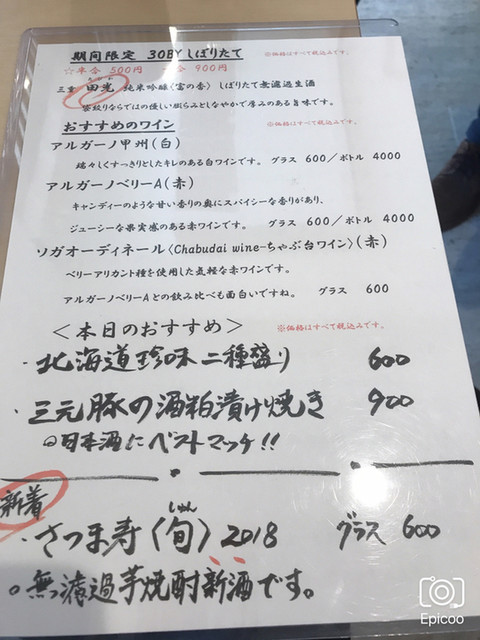 期間限定 30BYしぼりたて ※価格はすべて税込みです。
☆半合 500円 合 900円
三重 田光 純米吟醸〈富の香〉 しぼりたて無濾過生酒
袋絞りならではの優しい膨らみとしなやかで厚みのある旨味です。
おすすめのワイン ※価格はすべて税込みです。
アルガーノ甲州(白)
瑞々しくすっきりとしたキレのある白ワインです。 グラス 600/ボトル 4000
アルガーノベリーA(赤)
キャンディーのような甘い香りの奥にスパイシーな香りがあり、
ジューシーな果実感のある赤ワインです。 グラス 600/ボトル 4000
ソガオーディネール〈Chabudai wine-ちゃぶ台ワイン〉(赤)
ベリーアリカント種を使用した気軽な赤ワインです。
アルガーノベリーAとの飲み比べも面白いですね。 グラス 600
<本日のおすすめ> ※価格はすべて税込みです。
・北海道珍味二種盛り 600
・三元豚の酒粕漬け焼き 900
◎日本酒にベストマッチ!!
新着
・さつま寿〈旬〉2018 グラス 600
しゅん
○無濾過芋焼酎新酒です。
Epicoo